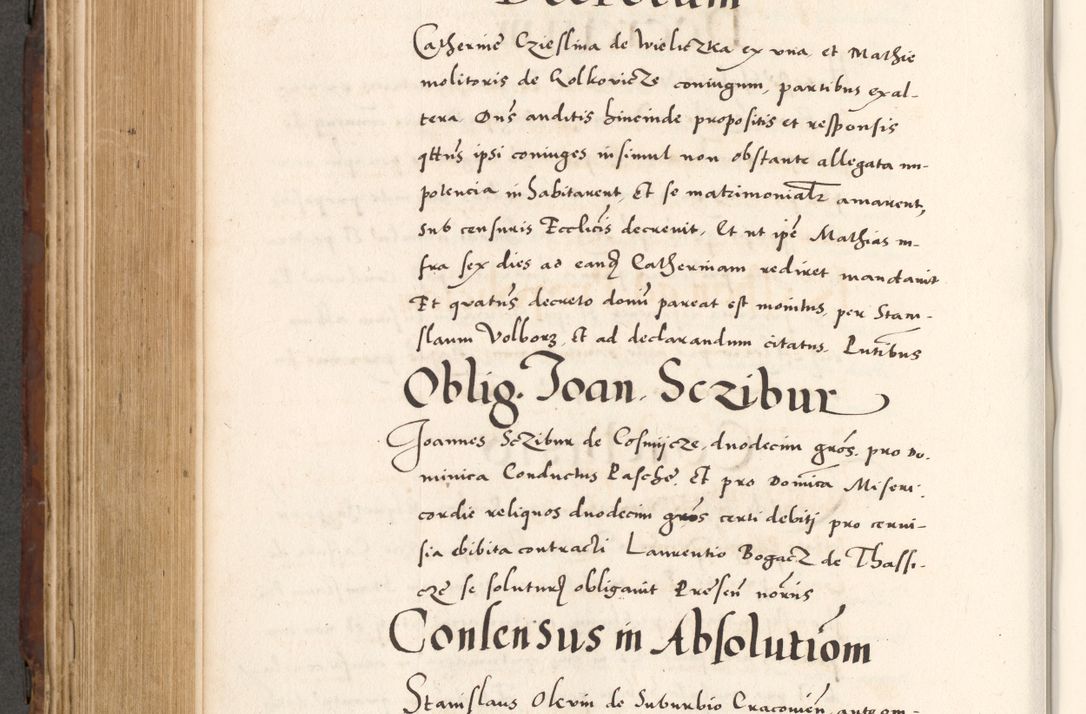 Decretum
Catherine Czieslina de Wieliczka ex una, et Mathie
molitoris de Rolkovicze coniugum, partibus exal-
tera. Dns auditis hincinde propositis et responsis
qtns ipsi coniuges insimul non obstante allegata im-
potencia inhabitarent, Et se matrimonialr amarent,
sub censuris Ecclicis decrevit. Et ut ipe Mathias in-
fra sex dies ad eand Catherinam rediret mandavit
Et quatns decreto domi pareat est monitus, per Stani-
slaum Volborz, Et ad declarandum citatus. Pntibus
Oblig. Joan. Sczibur
Joannes Sczibur de Cosmijcze, duodecim gros. pro Do.
minica Conductus Pasche. Et pro Domica Miseri.
cordie reliquos duodecim gros certi debitj pro cervi-
sia ebibita contracti Laurentio Bogacz de Thassi.
cze se soluturu obligavit Presen norns
Consensus in Absolutiom
Stanislaus Olexin de Suburbio Cracovien, ante om-